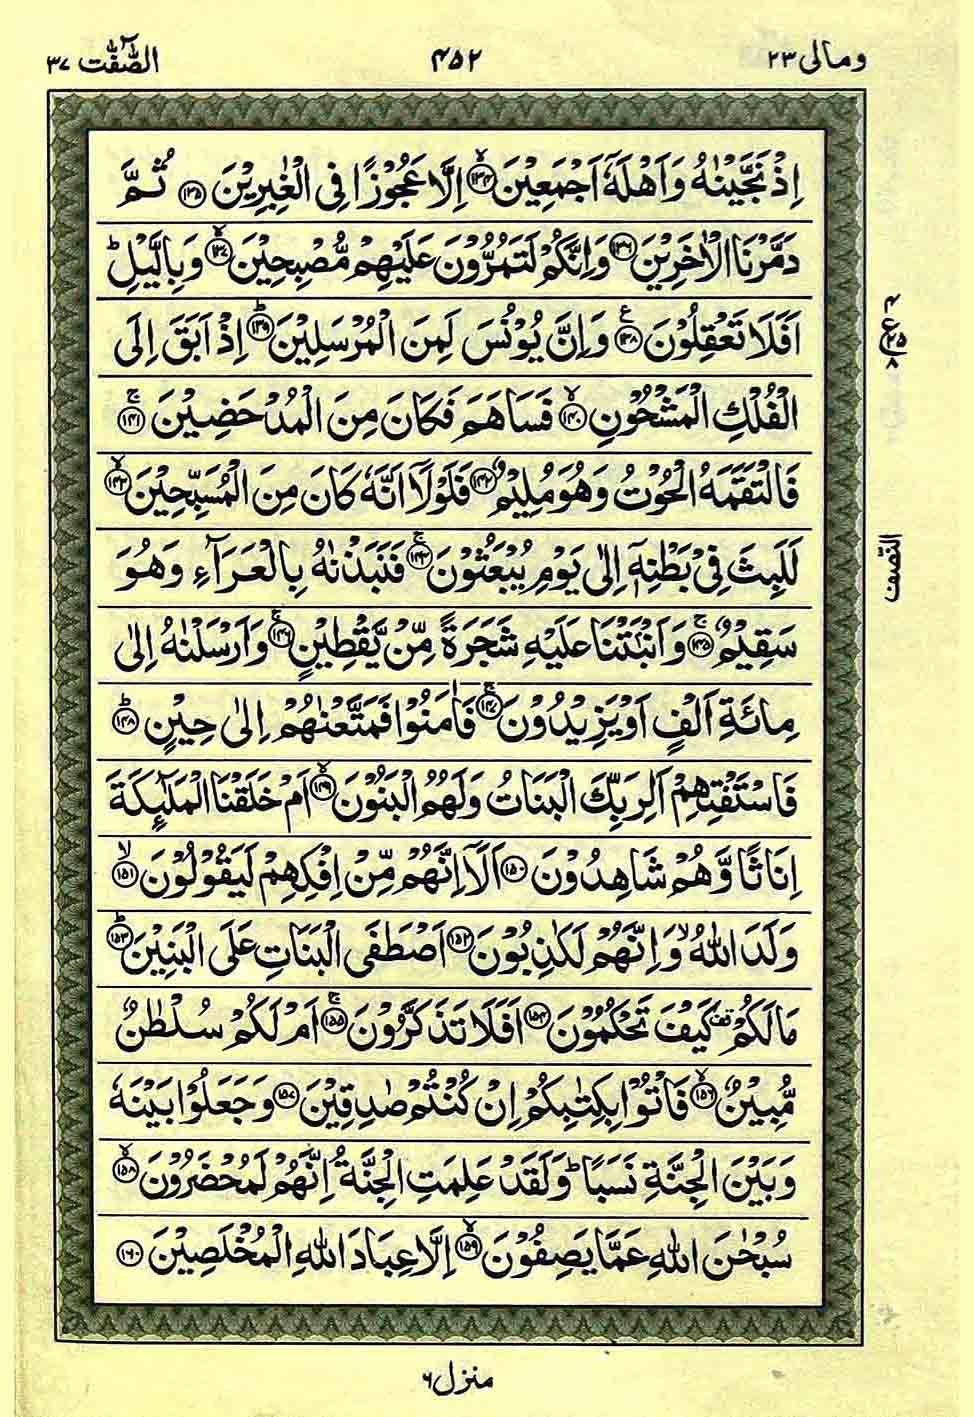 ومالی ۲۳ ۴۵۲ الصّٰٓفّٰت ۳۷
اِذْ نَجَّيْنٰهُ وَاَهْلَهٗٓ اَجْمَعِيْنَ ۙ﴿۱۳۴﴾ اِلَّا عَجُوْزًا فِی الْغٰبِرِيْنَ ﴿۱۳۵﴾ ثُمَّ
دَمَّرْنَا الْاٰخَرِيْنَ ﴿۱۳۶﴾ وَاِنَّكُمْ لَتَمُرُّوْنَ عَلَيْهِمْ مُّصْبِحِيْنَ ۙ﴿۱۳۷﴾ وَبِالَّيْلِ ؕ
اَفَلَا تَعْقِلُوْنَ ﴿۱۳۸﴾ۧ وَاِنَّ يُوْنُسَ لَمِنَ الْمُرْسَلِيْنَ ؕ﴿۱۳۹﴾ اِذْ اَبَقَ اِلَی
الْفُلْكِ الْمَشْحُوْنِ ۙ﴿۱۴۰﴾ فَسَاهَمَ فَكَانَ مِنَ الْمُدْحَضِيْنَ ۚ﴿۱۴۱﴾
فَالْتَقَمَهُ الْحُوْتُ وَهُوَ مُلِيْمٌ ﴿۱۴۲﴾ فَلَوْلَآ اَنَّهٗ كَانَ مِنَ الْمُسَبِّحِيْنَ ۙ﴿۱۴۳﴾
لَلَبِثَ فِیْ بَطْنِهٖٓ اِلٰی يَوْمِ يُبْعَثُوْنَ ۚ﴿۱۴۴﴾ فَنَبَذْنٰهُ بِالْعَرَآءِ وَهُوَ
سَقِيْمٌ ۚ﴿۱۴۵﴾ وَاَنْۢبَتْنَا عَلَيْهِ شَجَرَةً مِّنْ يَّقْطِيْنٍ ۚ﴿۱۴۶﴾ وَاَرْسَلْنٰهُ اِلٰی
مِائَةِ اَلْفٍ اَوْ يَزِيْدُوْنَ ۚ﴿۱۴۷﴾ فَاٰمَنُوْا فَمَتَّعْنٰهُمْ اِلٰی حِيْنٍ ؕ﴿۱۴۸﴾
فَاسْتَفْتِهِمْ اَلِرَبِّكَ الْبَنَاتُ وَلَهُمُ الْبَنُوْنَ ۙ﴿۱۴۹﴾ اَمْ خَلَقْنَا الْمَلٰٓئِكَةَ
اِنَاثًا وَّهُمْ شَاهِدُوْنَ ﴿۱۵۰﴾ اَلَآ اِنَّهُمْ مِّنْ اِفْكِهِمْ لَيَقُوْلُوْنَ ۙ﴿۱۵۱﴾
وَلَدَ اللّٰهُ ۙ وَاِنَّهُمْ لَكٰذِبُوْنَ ﴿۱۵۲﴾ اَصْطَفَی الْبَنَاتِ عَلَی الْبَنِيْنَ ؕ﴿۱۵۳﴾
مَا لَكُمْ قف كَيْفَ تَحْكُمُوْنَ ﴿۱۵۴﴾ اَفَلَا تَذَكَّرُوْنَ ۚ﴿۱۵۵﴾ اَمْ لَكُمْ سُلْطٰنٌ
مُّبِيْنٌ ۙ﴿۱۵۶﴾ فَاْتُوْا بِكِتٰبِكُمْ اِنْ كُنْتُمْ صٰدِقِيْنَ ﴿۱۵۷﴾ وَجَعَلُوْا بَيْنَهٗ
وَبَيْنَ الْجِنَّةِ نَسَبًا ؕ وَلَقَدْ عَلِمَتِ الْجِنَّةُ اِنَّهُمْ لَمُحْضَرُوْنَ ۙ﴿۱۵۸﴾
سُبْحٰنَ اللّٰهِ عَمَّا يَصِفُوْنَ ۙ﴿۱۵۹﴾ اِلَّا عِبَادَ اللّٰهِ الْمُخْلَصِيْنَ ﴿۱۶۰﴾
۴ ع ۲۵ ۸
النّصف
منزل ۶